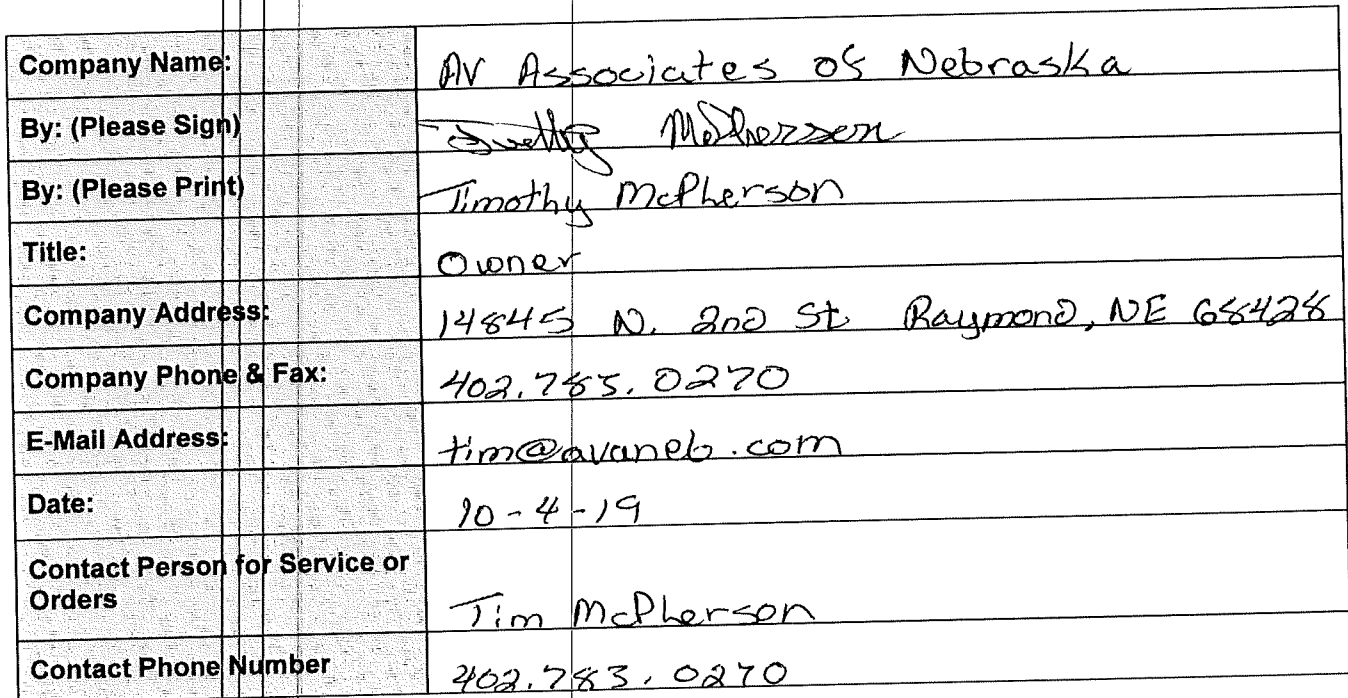 Company Name: AV Associates of Nebraska
By: (Please Sign) Timothy McPherson
By: (Please Print) Timothy McPherson
Title: Owner
Company Address: 14845 N. 2nd St. Raymond, NE 68428
Company Phone & Fax: 402.785.0270
E-Mail Address: tim@avaneb.com
Date: 10-4-19
Contact Person for Service or
Orders Tim McPherson
Contact Phone Number 402.783.0270